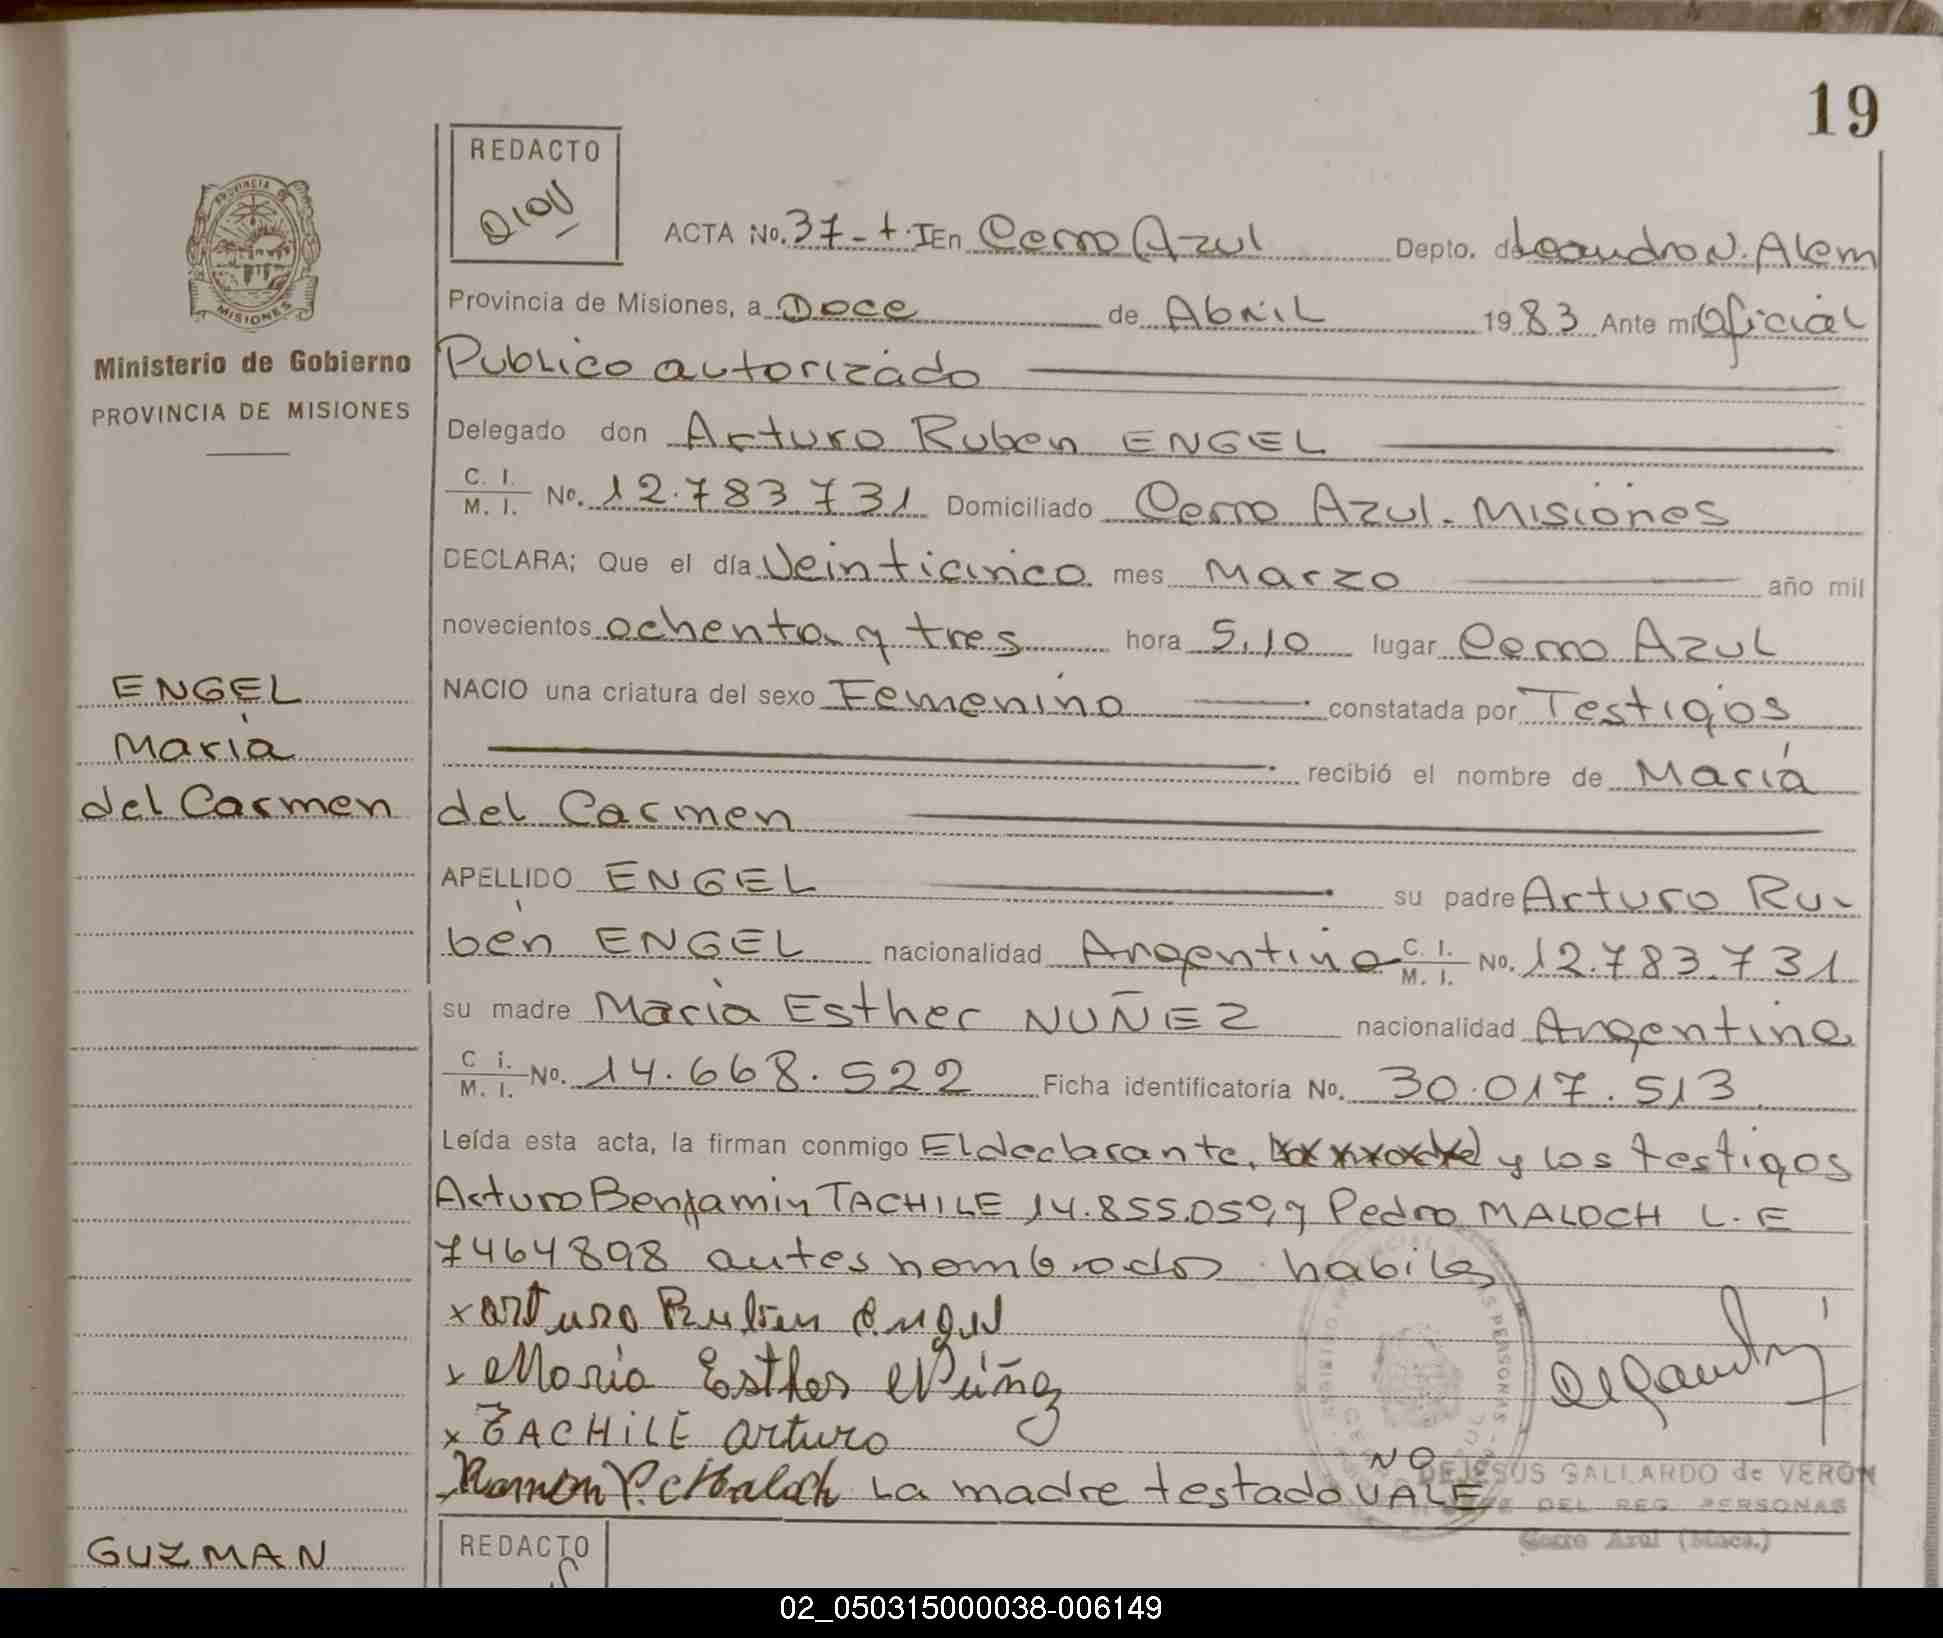 19
REDACTO
ACTA No. 37 - t. I En Cerro Azul Depto. de Leandro N. Alem
Provincia de Misiones, a Doce de Abril 1983 Ante mí Oficial
Publico autorizado
Delegado don Arturo Ruben ENGEL
C. I. / M. I. No. 12.783.731 Domiciliado Cerro Azul - Misiones
DECLARA; Que el día Veinticinco mes Marzo año mil
novecientos ochenta y tres hora 5,10 lugar Cerro Azul
NACIO una criatura del sexo Femenino constatada por Testigos
recibió el nombre de María
del Carmen
APELLIDO ENGEL su padre Arturo Ru-
bén ENGEL nacionalidad Argentina C. I. / M. I. No. 12.783.731
su madre Maria Esther NUÑEZ nacionalidad Argentina
C i. / M. I. No. 14.668.522 Ficha identificatoria No. 30.017.513
Leída esta acta, la firman conmigo El declarante, y los testigos
Arturo Benjamin TACHILE 14.855.059, y Pedro MALOCH L. E
7464898 antes nombrados habiles
x Arturo Ruben Engel
x Maria Esther Núñez
x TACHiLE arturo
Ramon P. Maloch La madre testado NO VALE
DE JESUS GALLARDO de VERON
DEL REG. PERSONAS
Cerro Azul (Mnes.)
PROVINCIA
MISIONES
Ministerio de Gobierno
PROVINCIA DE MISIONES
ENGEL
María
del Carmen
GUZMAN
REDACTO
02_050315000038-006149